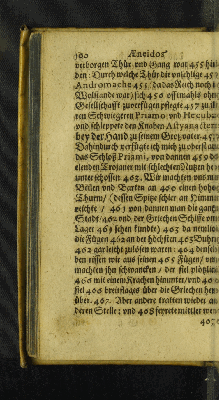 100 Æneidos
verborgen Thür und Gang war 455 hin
den: Durch welche Thür die unselige 457
Andromache 451 / da das Reich noch
Wolstande war / sich 450 offtmahls ohne
Gesellschafft zuverfügen pflegte 457 zu
ren Schwiegern Priamo und Hecuba:
und schleppete den Knaben Astyanactem
bey der Hand zu seinem Großvater. 457
Dahindurch verfügte ich mich zu oberst auf
das Schloß Priami, von dannen 459 die
elenden Trojaner mit schlechten Nutzen her
unter schossen 463. Wir machten uns mit
Beilen und Barten an 460 einen hohen
Thurm / (dessen Spitze schier an Himmel
reichte / 461 von dannen man die gantze
Stadt / 462 und der Griechen Schiffe und
Lager 463 sehen kundte) 463 da nemlich
die Fügen 462 an der höchsten 463 Bühne
462 gar leicht zulösen waren: 464 denselben
rissen wir aus seinen 465 Fügen / und
machten ihn schwancken / der fiel plötzlich
466 mit einem Krachen hinunter / und 465
fiel 466 breitflages über die Griechen her=
über. 467. Aber andere tratten wieder an
deren Stelle: und 468 feyrete mittler weil